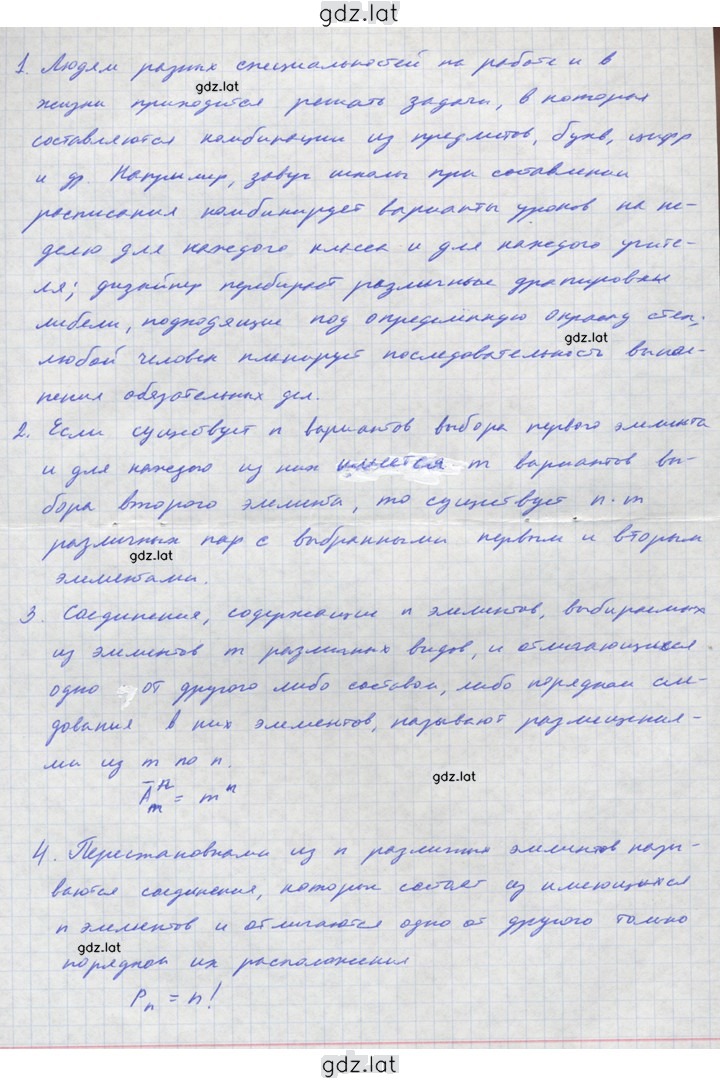 gdz.lat
1. Людям разных специальностей на работе и в
gdz.lat
жизни приходится решать задачи, в которых
составляются комбинации из предметов, букв, цифр
и др. Например, завуч школы при составлении
расписания комбинирует варианты уроков на не-
делю для каждого класса и для каждого учите-
ля; дизайнер перебирает различные драпировки
мебели, подходящие под определенную окраску стен;
gdz.lat
любой человек планирует последовательность выпол-
нения обязательных дел.
2. Если существует n вариантов выбора первого элемента
и для каждого из них имеется m вариантов вы-
бора второго элемента, то существует n·m
различных пар с выбранными первым и вторым
gdz.lat
элементами.
3. Соединения, содержащие n элементов, выбираемых
из элементов m различных видов, и отличающиеся
одно от другого либо составом, либо порядком сле-
дования в них элементов, называют размещения-
ми из m по n.
gdz.lat
Ā^n_m = m^n
4. Перестановками из n различных элементов назы-
ваются соединения, которые состоят из имеющихся
n элементов и отличаются одно от другого только
gdz.lat
порядком их расположения
P_n = n!
gdz.lat